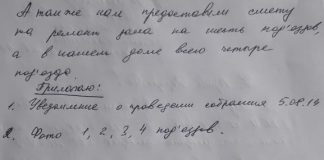 А также нам предоставили смету
на ремонт дома на шесть под'ездов,
а в нашем доме всего четыре
под'езда.
Прилагаю:
1. Уведомление о проведении собрания 5.08.14
2. Фото 1, 2, 3, 4 под'ездов.